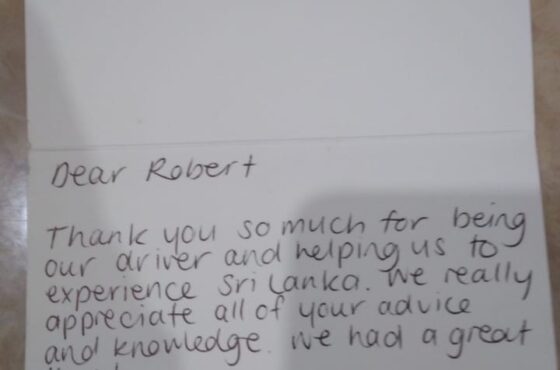 Dear Robert
Thank you so much for being
our driver and helping us to
experience Sri Lanka. We really
appreciate all of your advice
and knowledge. We had a great